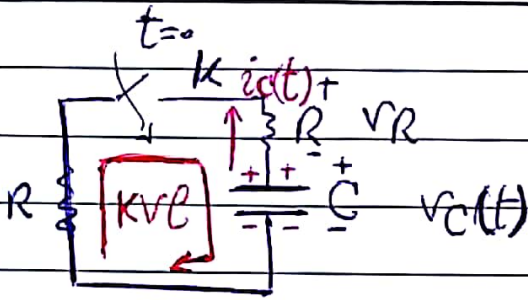 t=0
K ic(t) +
R VR
-
+ + +
R KVL C Vc(t)
- - -